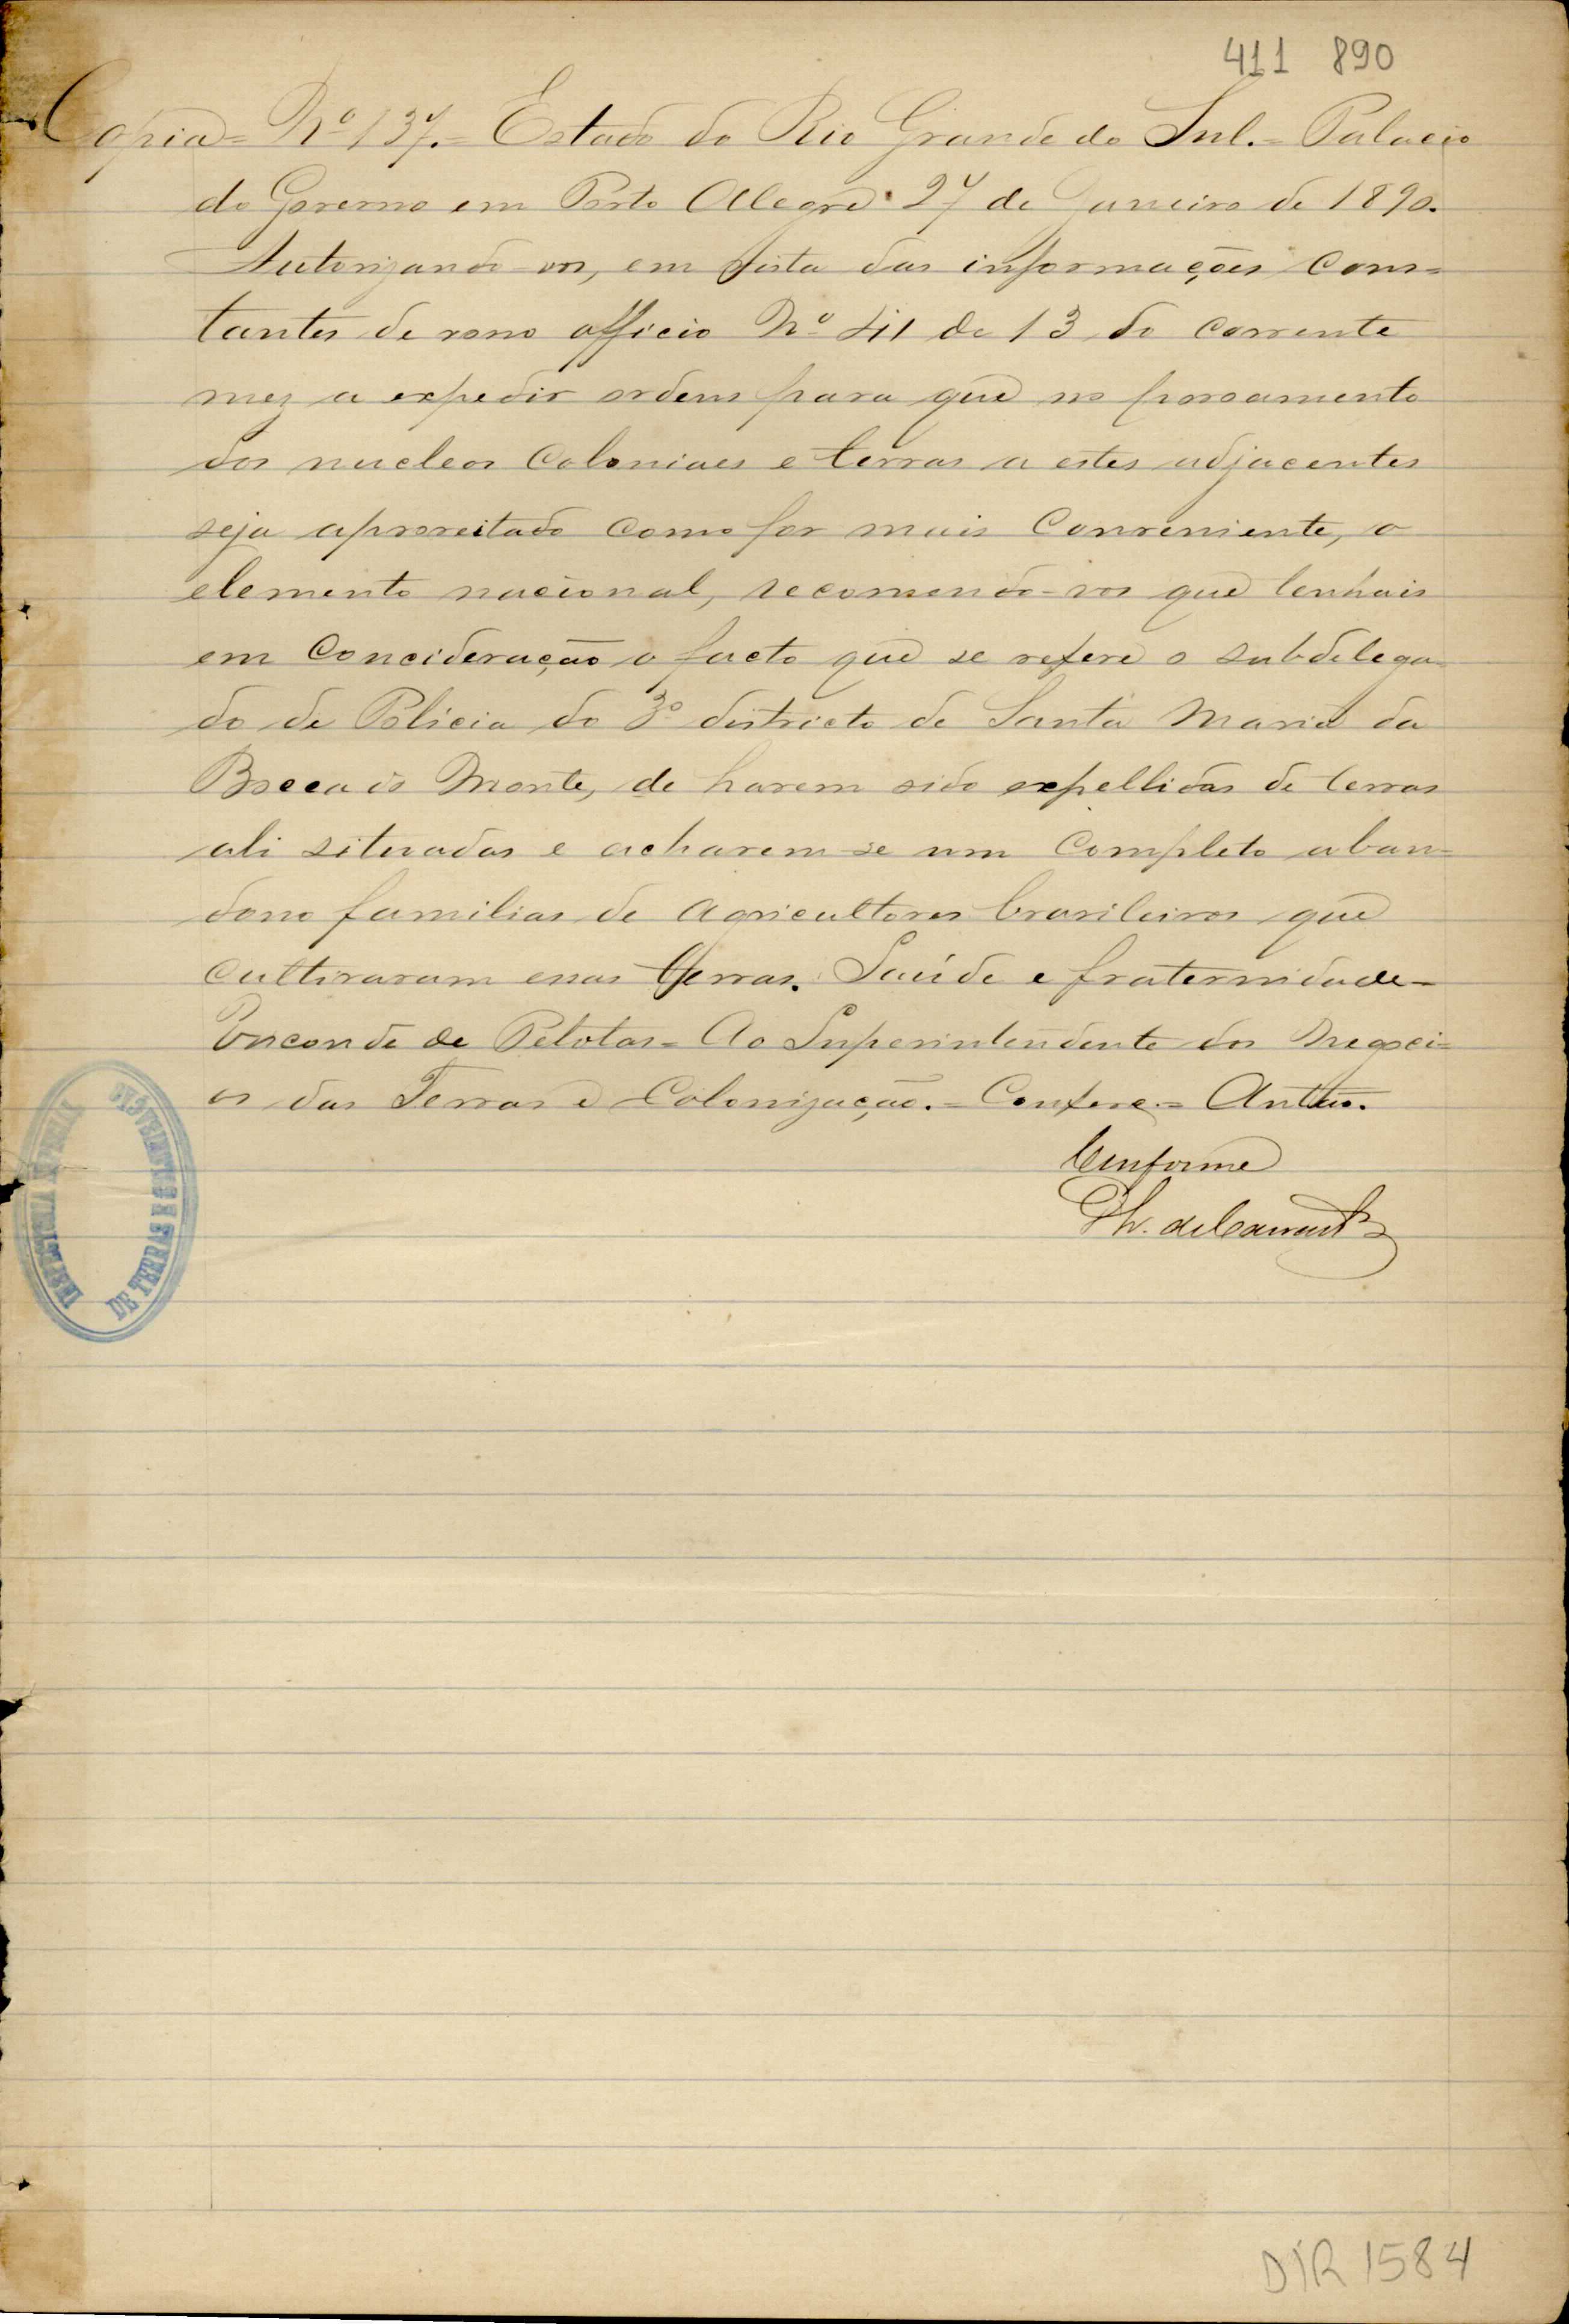 411 890
Copia = Nº 137. = Estado do Rio Grande do Sul. = Palacio
do Governo em Porto Alegre 27 de Janeiro de 1890.
Autorizando-vos, em vista das informações cons=
tantes de vosso officio Nº 41 de 13 do corrente
mez a expedir ordens para que no povoamento
dos nucleos Coloniaes e terras a estes adjacentes
seja aproveitado como for mais conveniente, o
elemento nacional, recomendo-vos que tenhais
em Concideração o facto que se refere o subdelega=
do de Policia do 3º districto de Santa Maria da
Bocca do Monte, de harem sido expellidas de terras
ali situadas e acharem-se um completo aban=
dono familias de agricultores brasileiros que
cultivavam essas terras. Saúde e fraternidade=
Visconde de Pelotas = Ao Superintendente dos Negoci=
os das Terras e Colonização. = Confere. = Antão.
Conforme
INSPECTORIA ESPECIAL
DE TERRAS E COLONISAÇÃO
DIR 1584